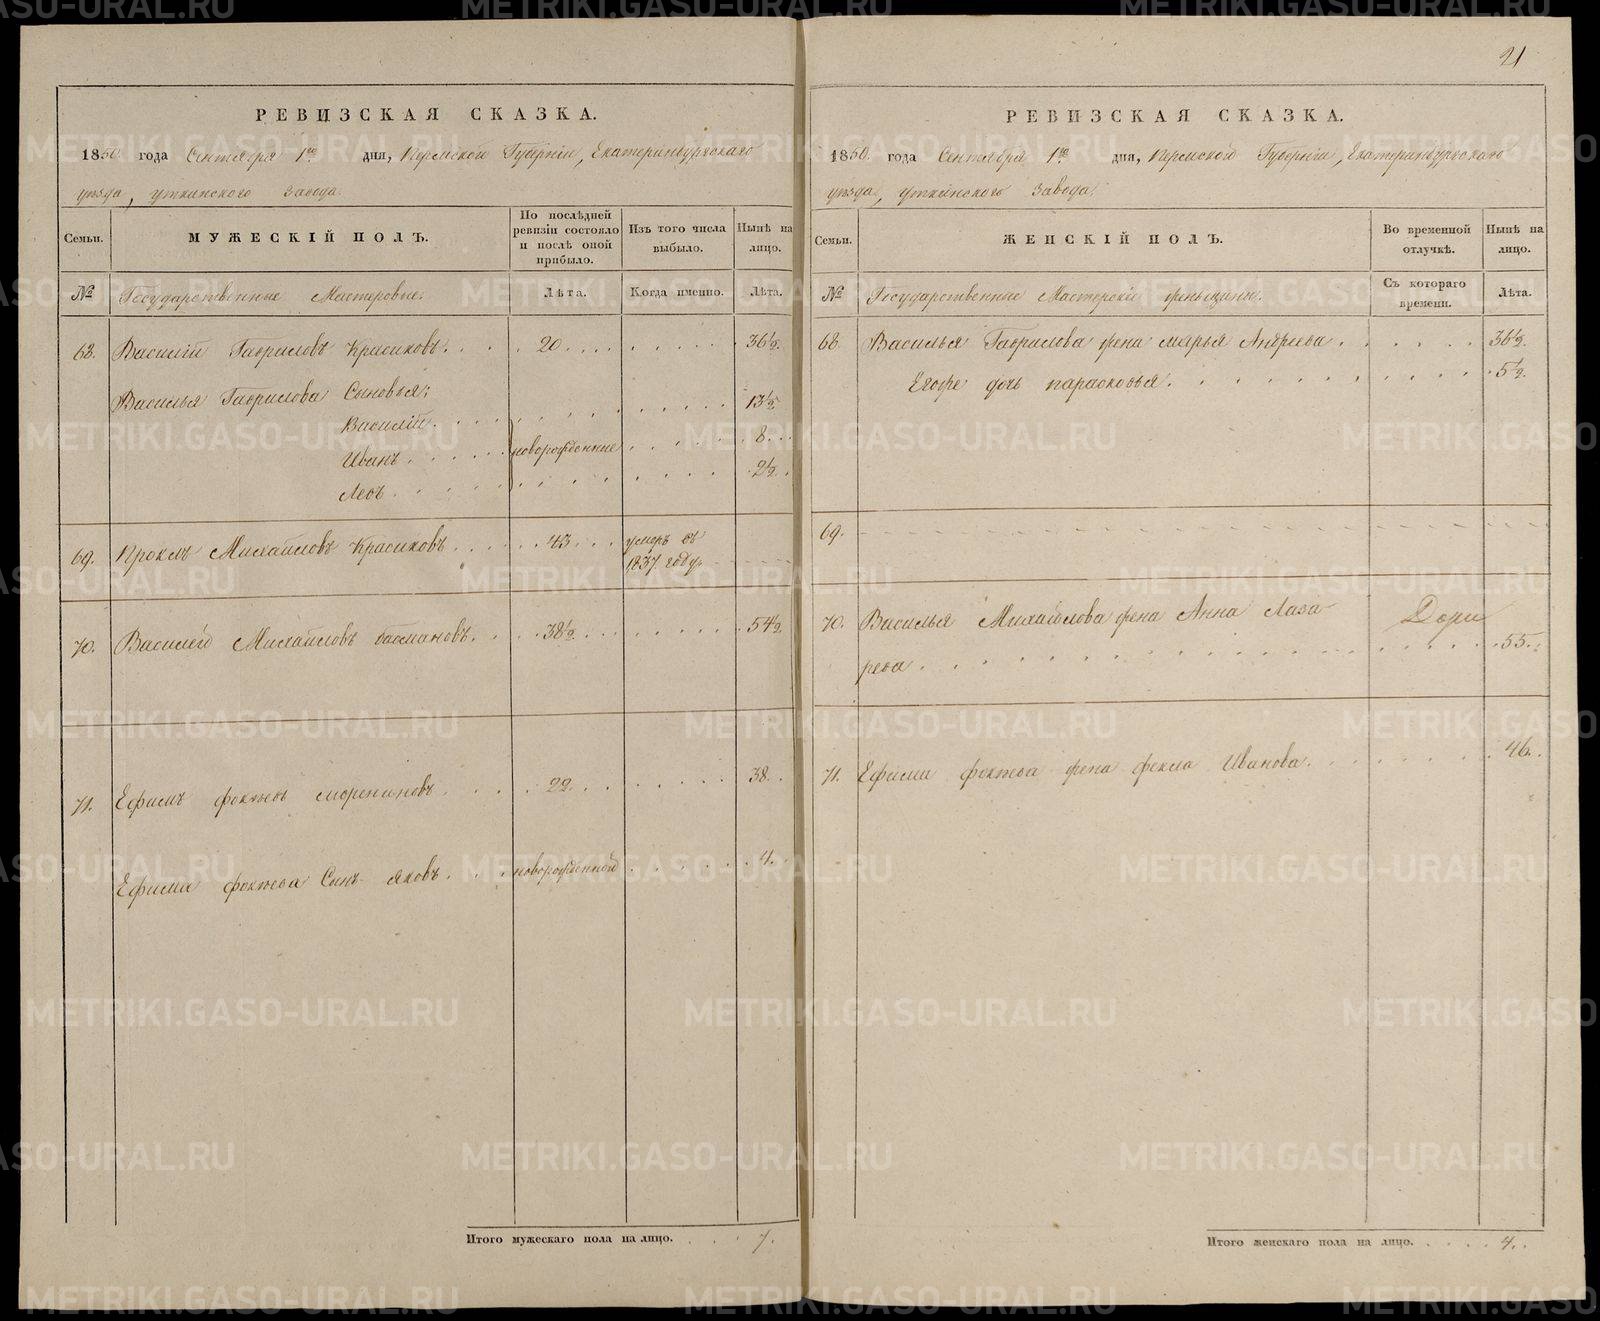 21
РЕВИЗСКАЯ СКАЗКА.
1850 года Сентября 1го дня, Пермской Губернiи, Екатеринбургскаго
уѣзда, Уткинского Завода.
Семьи.
МУЖЕСКIЙ ПОЛЪ.
По послѣдней ревизiи состояло и послѣ оной прибыло.
Изъ того числа выбыло.
Нынѣ на лицо.
№
Государственные Мастеровые.
Лѣта.
Когда именно.
Лѣта.
68. Василiй Гавриловъ Красиковъ. 20. 36½.
Василья Гаврилова Сыновья;
Василiй. 13½
Иванъ. новорожденные 8.
Левъ. 2½.
69. Проклъ Михайловъ Красиковъ. 43 умеръ въ
1837. году
70. Василей Михайловъ Басмановъ. 38½. 54½
71. Ефимъ фоктеовъ 22. 38.
Ефима фоктеова Сынъ Яковъ. новорожденной 4.
Итого мужескаго пола на лицо. 7.
РЕВИЗСКАЯ СКАЗКА.
1850 года Сентября 1го дня, Пермской Губернiи, Екатеринбургскаго
уѣзда, Уткинского Завода.
Семьи.
ЖЕНСКIЙ ПОЛЪ.
Во временной отлучкѣ.
Нынѣ на лицо.
№
Государственные Мастерскiе женьщины.
Съ котораго времени.
Лѣта.
68. Василья Гаврилова жена марья Андреева. 36½.
Егоже дочь парасковья. 5½.
69.
70. Василья Михайлова жена Анна Лаза
рева. 55.
71. Ефима фоктеова жена фекла Иванова. 46.
Итого женскаго пола на лицо. 4.
METRIKI.GASO-URAL.RU